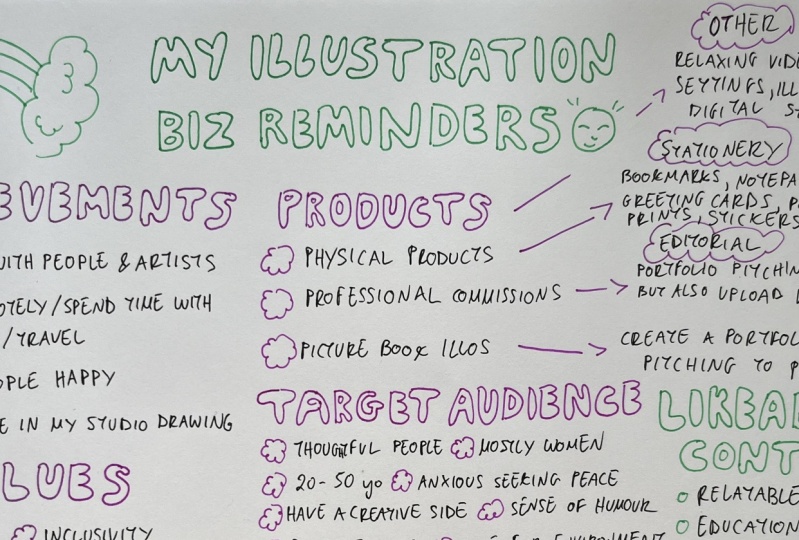 MY ILLUSTRATION
BIZ REMINDERS
OTHER
RELAXING
SETTINGS,
DIGITAL
STATIONERY
BOOKMARKS,
GREETING CARDS,
PRINTS, STICKERS
EDITORIAL
PORTFOLIO
BUT ALSO UPLOAD
CREATE A
PITCHING TO
WITH PEOPLE & ARTISTS
/SPEND TIME WITH
/TRAVEL
HAPPY
IN MY STUDIO DRAWING
INCLUSIVITY
PRODUCTS
PHYSICAL PRODUCTS
PROFESSIONAL COMMISSIONS
PICTURE BOOK ILLOS
TARGET AUDIENCE
THOUGHTFUL PEOPLE MOSTLY WOMEN
20-50 yo ANXIOUS SEEKING PEACE
HAVE A CREATIVE SIDE SENSE OF HUMOUR
RELATABLE
EDUCATION